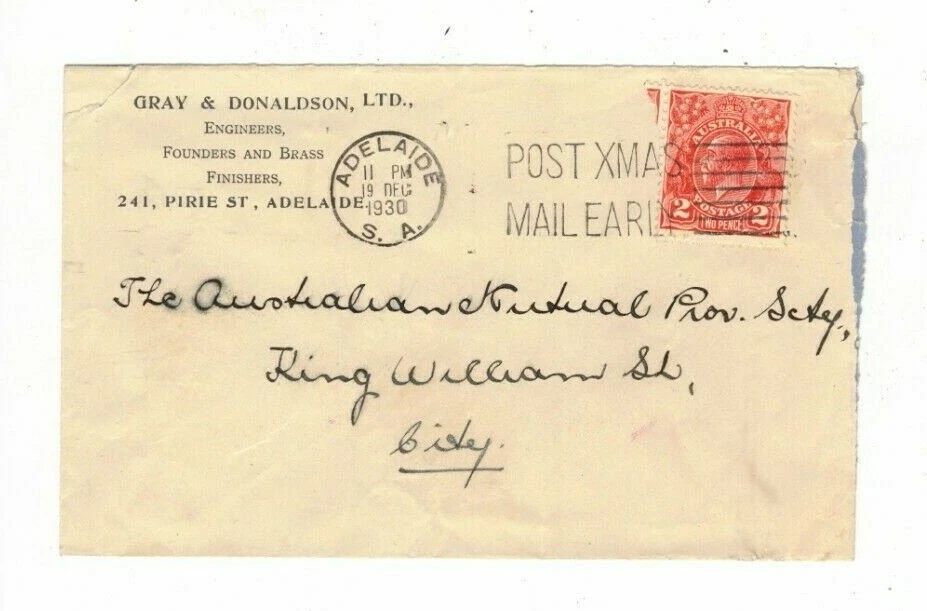 GRAY & DONALDSON, LTD.,
ENGINEERS,
FOUNDERS AND BRASS
FINISHERS,
241, PIRIE ST, ADELAIDE.
ADELAIDE
11 PM
19 DEC
1930
S. A.
POST XMAS
MAIL EARLY
AUSTRALIA
POSTAGE
2 2
TWO PENCE
The Australian Mutual Prov. Scty.,
King William St,
City.